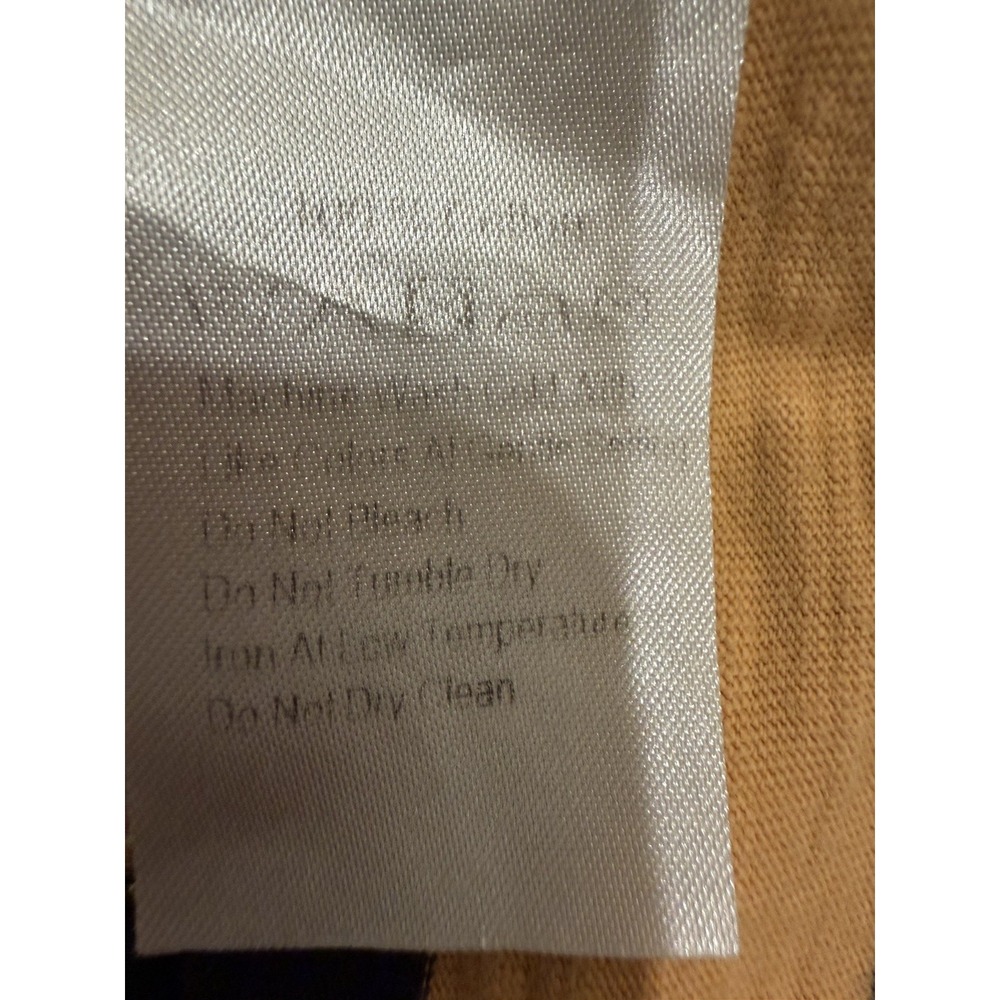 Machine Wash Cold
Like Colors At Gentle
Do Not Bleach
Do Not Tumble Dry
Iron At Low Temperature
Do Not Dry Clean